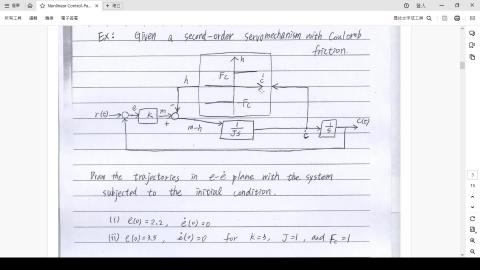 Nonlinear Control-Pa...
登入
所有工具
編輯
轉換
電子簽署
Ex: Given a second-order servomechanism with Coulomb
friction.
h
Fc
h
ċ
-Fc
r(t)
e
K
m
-
+
m-h
1/Js
ċ
1/s
c(t)
-
Draw the trajectories in e-ė plane with the system
subjected to the initial condition.
(i) e(0)=2.2, ė(0)=0
(ii) e(0)=3.5, ė(0)=0 for K=5, J=1, and Fc=1